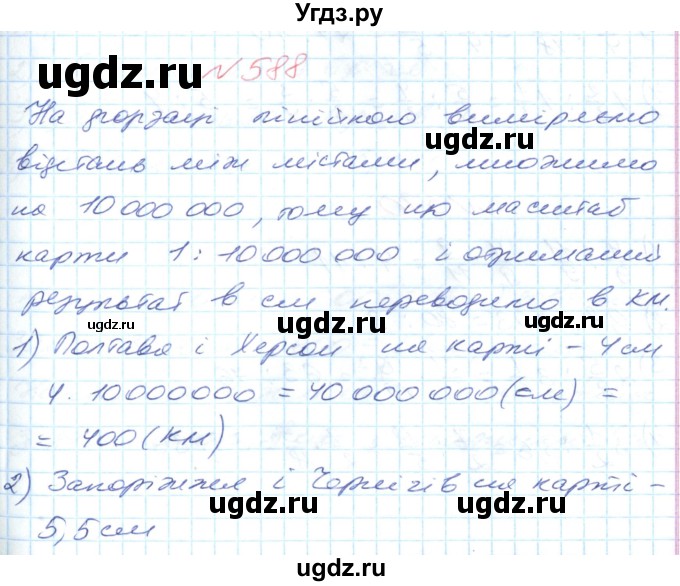 Угдз.ру
№ 588
На допомозі лінійкою виміряємо
відстань між містами, множимо
на 10 000 000, тому що масштаб
карти 1 : 10 000 000 і отриманий
результат в см переводимо в км.
1) Полтава і Херсон на карті - 4 см
4 · 10000000 = 40 000 000 (см) =
= 400 (км)
2) Запоріжжя і Чернігів на карті -
5,5 см
ugdz.ru
ugdz.ru
ugdz.ru
ugdz.ru
ugdz.ru
ugdz.ru
ugdz.ru
ugdz.ru
ugdz.ru